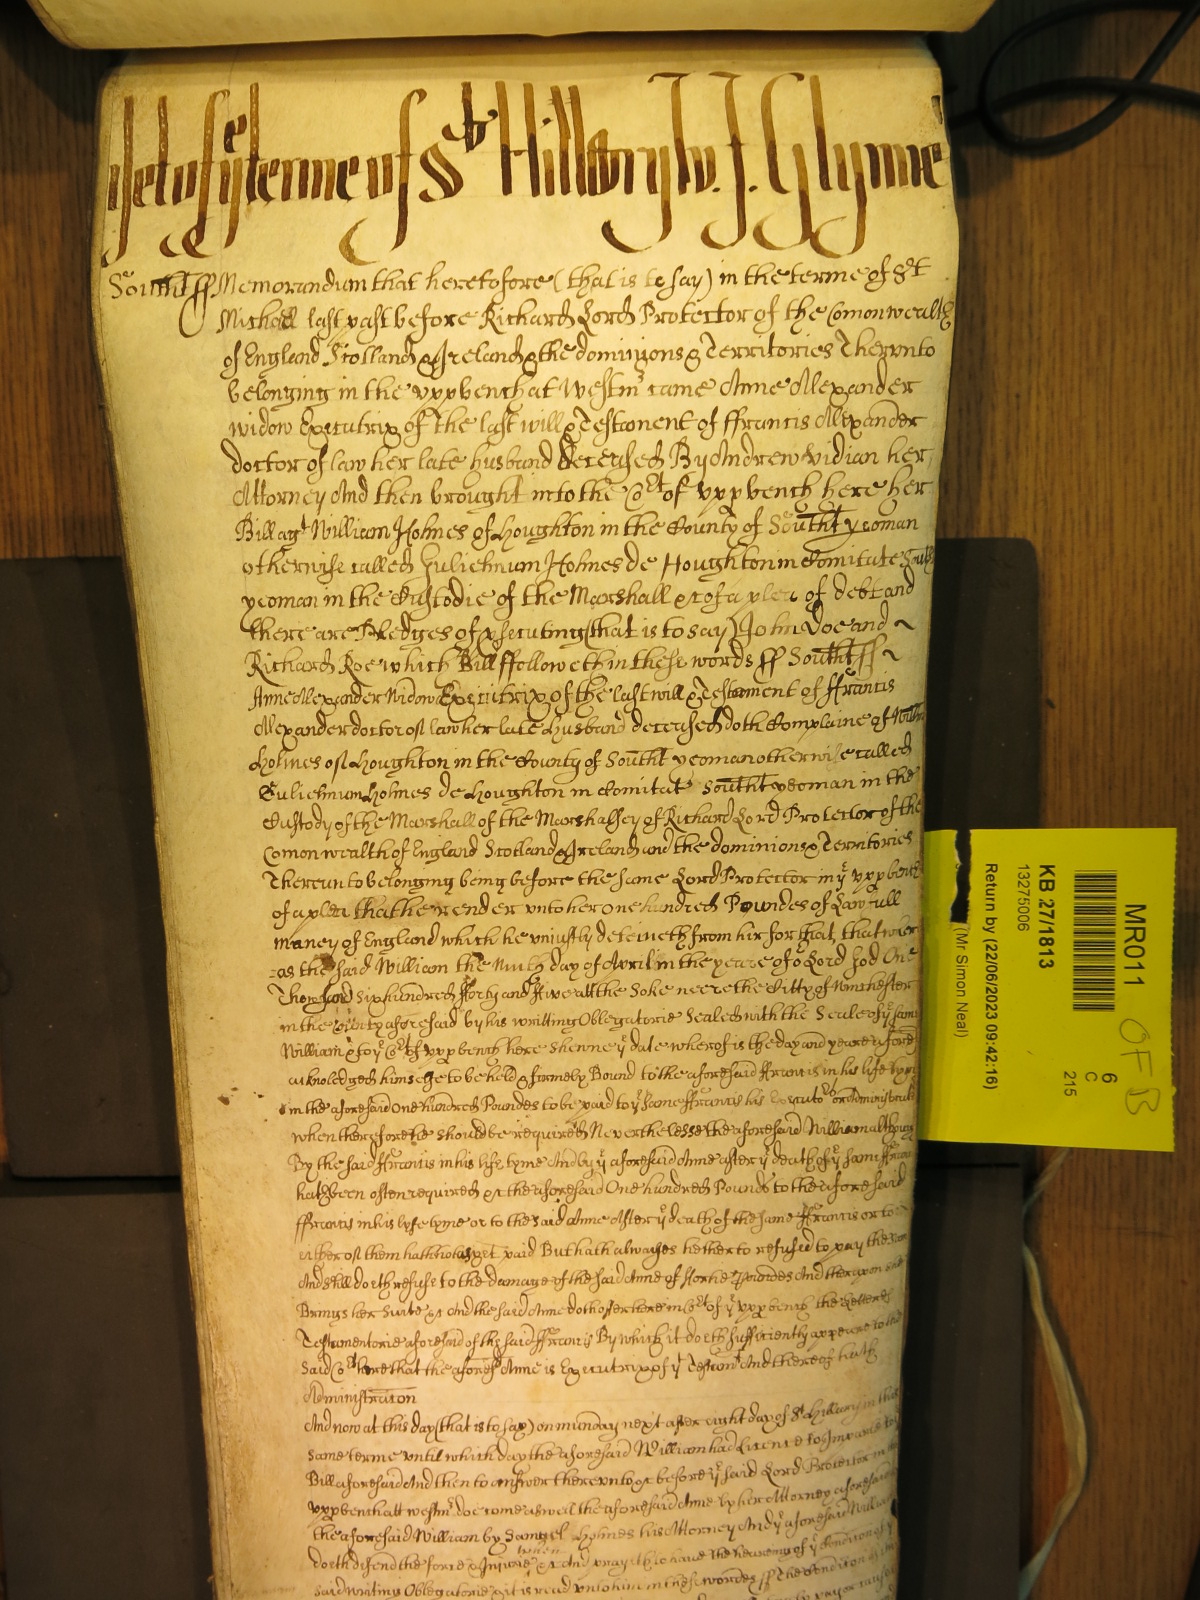 yet of ye terme of St Hillary W. J. Glynne
Southt ss Memorandum that heretofore (that is to say) in the terme of St
Michell last past before Richard Lord Protector of the Comonwealth
of England Scotland & Ireland & the dominions & Territories Thervnto
belonging in the vpp bench at Westmr came Anne Alexander
widow Executrix of the last will & Testament of ffrancis Alexander
doctor of law her late husband deceased By Andrew Vidian her
Attorney And then brought into the Cort of vpp bench here her
Bill agt William Holmes of Houghton in the County of Southt yeoman
otherwise called Guliehmum Holmes de Houghton in Comitate South
yeoman in the Custodie of the Marshall &c of a plea of debt and
there are Pledges of psecuting (that is to say) John Doe and
Richard Roe which Bill ffolloweth in these words ss Southt ss
Anne Alexander Widow Executrix of the last will & Testament of ffrancis
Alexander doctor of law her late Husband deceased doth Complaine of Willm
Holmes of Houghton in the County of Southt yeoman otherwise called
Guliehmum Holmes de Houghton in Comitat Southt yeoman in the
Custody of the Marshall of the Marshalsey of Richard Lord Protector of the
Comonwealth of England Scotland & Ireland and the dominions & Territories
Thereunto belonging being before the same Lord Protector in ye vpp bench
of a plea that he render vnto her one hundred Powndes of Lawfull
money of England which he vniustly deteineth from her for that, that wher
=as the said William the Ninth day of Aprill in the yeare of or Lord God One
Thowsand six hundred fforty and ffive att the Soke neere the Citty of Winchester
in the County aforesaid by his writting Obligatorie Sealed with the Seale of ye same
William & to ye Cort of vpp bench here shewne ye date wherof is the day and yeare aforesd
acknoledged himselfe to be held & firmely Bound to the aforesaid ffrancis in his life tyme
in the aforesaid One hundred Poundes to be paid to ye same ffrancis his Executors or Administrators
when therefore he should be required Neverthelesse the aforesaid William although
By the said ffrancis in his life tyme And by ye aforesaid Anne after ye death of ye same ffrancis
hath Been often required &c the aforesaid One hundred Pounds to the aforesaid
ffrancis in his lyfe tyme or to the said Anne After ye death of the same ffrancis or to
either of them hath not as yet paid But hath alwaies hetherto refused to pay the same
And still doeth refuse to the damage of the said Anne of ffortie Poundes And therupon she
Brings her Suite &c And the said Anne doth offer here in Cort of ye vpp bench the Letters
Testamentorie aforesaid of the said ffrancis By which it doeth sufficiently appeare to the
said Cort here that the aforesd Anne is Executrix of ye Testamt And thereof hath
Administracon
And now at this day (that is to say) on munday next after eight day of St Hillary in this
same terme vntil which day the aforesaid William had Licence to Imparle to ye
Bill aforesaid And then to answer therevnto &c before ye said Lord Protector in the
vpp bench att westmr doe come aswell the aforesaid Anne by her Attorney aforesaid
the aforesaid William by Samuel Holmes his Attorney And ye aforesaid William
doeth difend the force & Injurie when &c And prayeth to have the heareing of ye Condicon of ye
said writing Oblegatorie & it is read vnto him in these wordes ss The Condicon
MR011
KB 27/1813
13275006
Return by (22/06/2023 09:42:16)
(Mr Simon Neal)
6
C
215
OFB